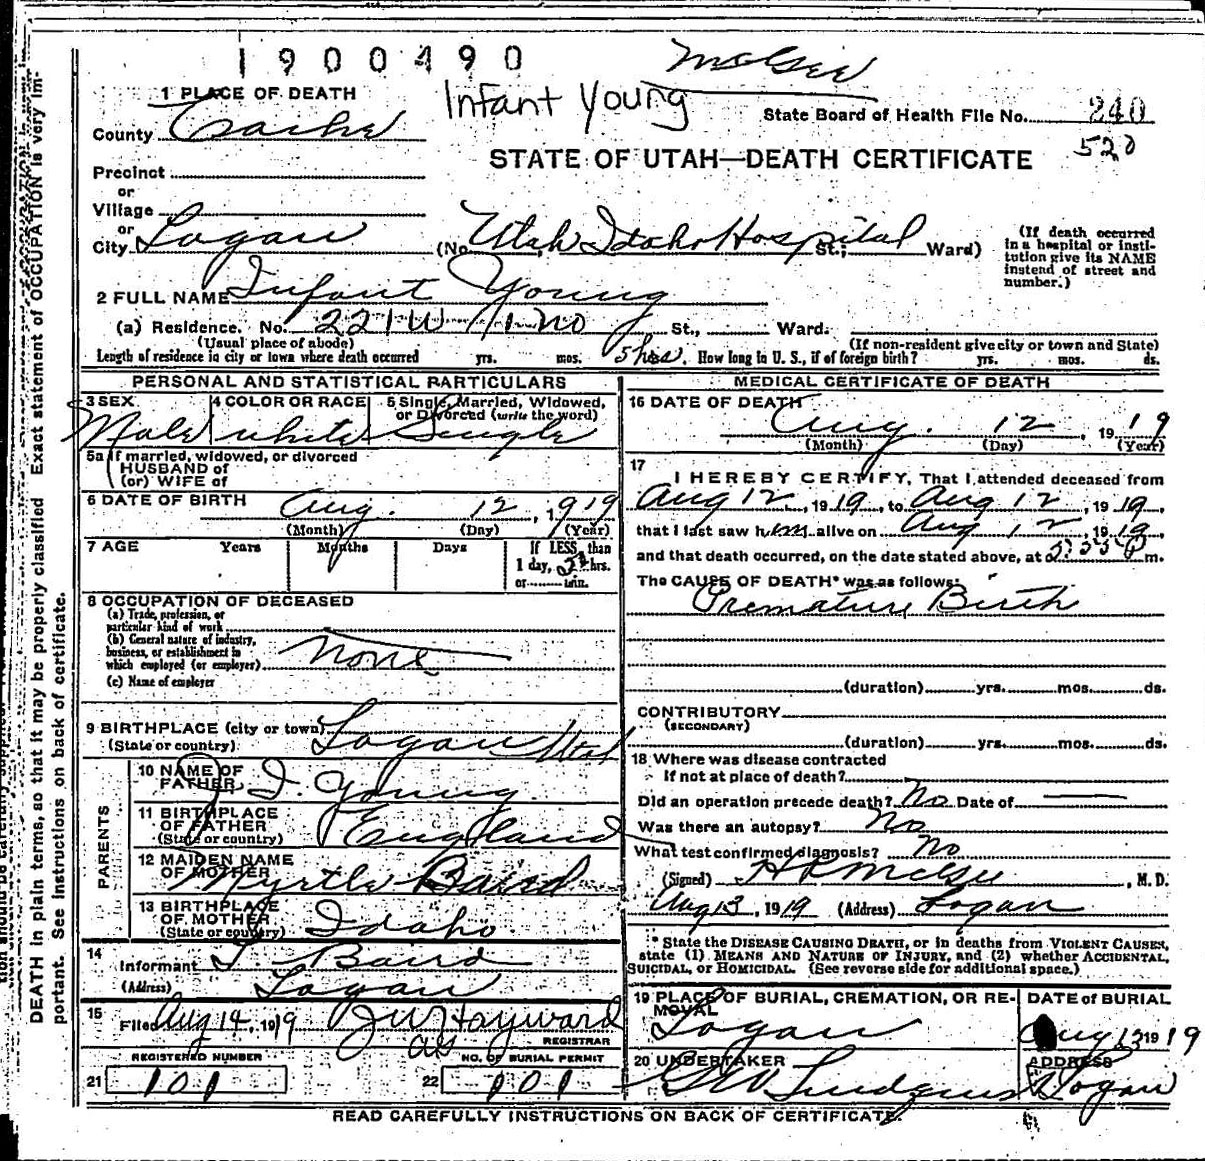 1900490
McGee
Infant Young
1 PLACE OF DEATH
State Board of Health File No. 240
County Cache
520
STATE OF UTAH—DEATH CERTIFICATE
Precinct
or
Village
or
City Logan (No. Utah Idaho Hospital St.; Ward)
(If death occurred in a hospital or insti-
tution give its NAME
instead of street and
number.)
2 FULL NAME Infant Young
(a) Residence. No. 221 W 1 No St., Ward.
(Usual place of abode)
(If non-resident give city or town and State)
Length of residence in city or town where death occurred yrs. mos. 5 hrs. How long in U. S., if of foreign birth? yrs. mos. ds.
PERSONAL AND STATISTICAL PARTICULARS
3 SEX
Male
4 COLOR OR RACE
white
5 Single, Married, Widowed,
or Divorced (write the word)
Single
5a If married, widowed, or divorced
HUSBAND of
(or) WIFE of
6 DATE OF BIRTH Aug. 12, 1919
(Month) (Day) (Year)
7 AGE Years Months Days
If LESS than
1 day, hrs.
or min.
8 OCCUPATION OF DECEASED
(a) Trade, profession, or
particular kind of work
(b) General nature of industry,
business, or establishment in
which employed (or employer)
None
(c) Name of employer
9 BIRTHPLACE (city or town) Logan Utah
(State or country)
PARENTS
10 NAME OF
FATHER J. I. Young
11 BIRTHPLACE
OF FATHER England
(State or country)
12 MAIDEN NAME
OF MOTHER Myrtle Baird
13 BIRTHPLACE
OF MOTHER Idaho
(State or country)
14
Informant Baird
(Address) Logan
15
Filed Aug 14, 1919 J W Hayward
REGISTRAR
REGISTERED NUMBER NO. OF BURIAL PERMIT
21 101 22 101
MEDICAL CERTIFICATE OF DEATH
16 DATE OF DEATH
Aug. 12, 1919
(Month) (Day) (Year)
17
I HEREBY CERTIFY, That I attended deceased from
Aug 12, 1919, to Aug 12, 1919,
that I last saw him alive on Aug 12, 1919,
and that death occurred, on the date stated above, at P m.
The CAUSE OF DEATH* was as follows:
Premature Birth
(duration) yrs. mos. ds.
CONTRIBUTORY
(SECONDARY)
(duration) yrs. mos. ds.
18 Where was disease contracted
If not at place of death?
Did an operation precede death? No Date of
Was there an autopsy? No
What test confirmed diagnosis? No
(Signed) McGee, M. D.
Aug 13, 1919 (Address) Logan
* State the DISEASE CAUSING DEATH, or in deaths from VIOLENT CAUSES,
state (1) MEANS AND NATURE OF INJURY, and (2) whether ACCIDENTAL,
SUICIDAL, or HOMICIDAL. (See reverse side for additional space.)
19 PLACE OF BURIAL, CREMATION, OR RE-
MOVAL
Logan
DATE of BURIAL
Aug 13 1919
20 UNDERTAKER
ADDRESS
Logan
READ CAREFULLY INSTRUCTIONS ON BACK OF CERTIFICATE.
DEATH in plain terms, so that it may be properly classified Exact statement of OCCUPATION is very im-
portant. See instructions on back of certificate.